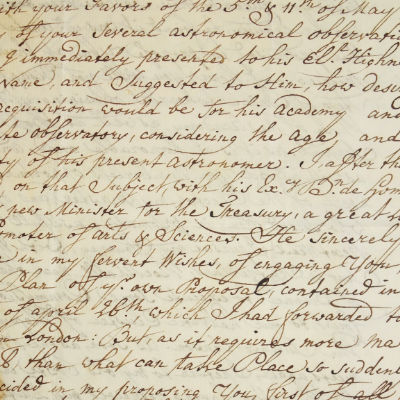 ith your Favors of the 5th & 11th of May
of your Several astronomical observati
g immediately presented to his El.l Highn
vane, and Suggested to Him, how des
acquisition would be for his Academy and
the observatory, considering the age and
ty of his present astronomer. I after th
on that Subject with his Ex. de Hom
new Minister for the Treasury, a great
omoter of arts & Sciences. He Sincerely
e in my fervent Wishes, of engaging You,
Plan of yr. own Proposal, contained in
of april 26th which I had forwarded to
on London: But, as it requires more ma
8, than what can take Place so sudden
cided in my proposing You, first of all